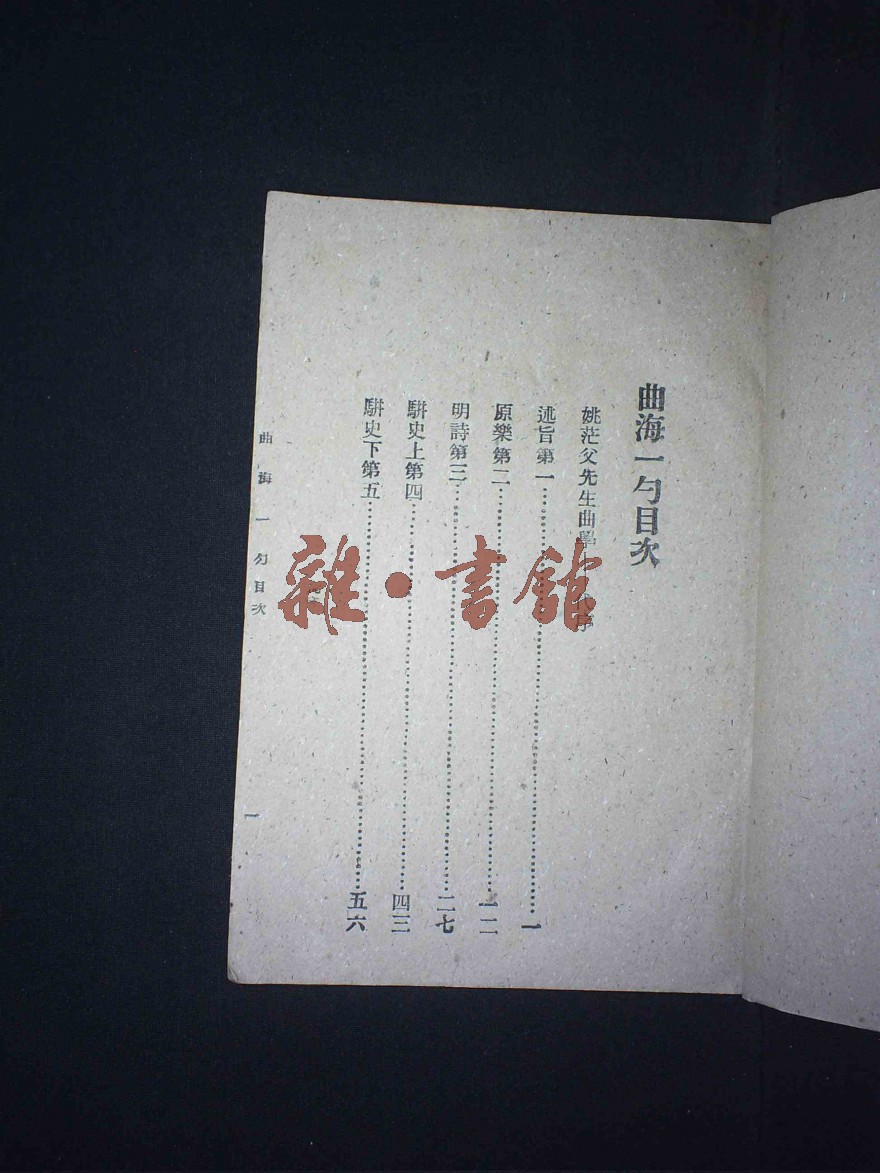 曲海一勺目次
姚茫父先生曲學 序
述旨第一……一
原樂第二……一二
明詩第三……二七
駢史上第四……四三
駢史下第五……五六
曲海一勺目次
一
雜·書館